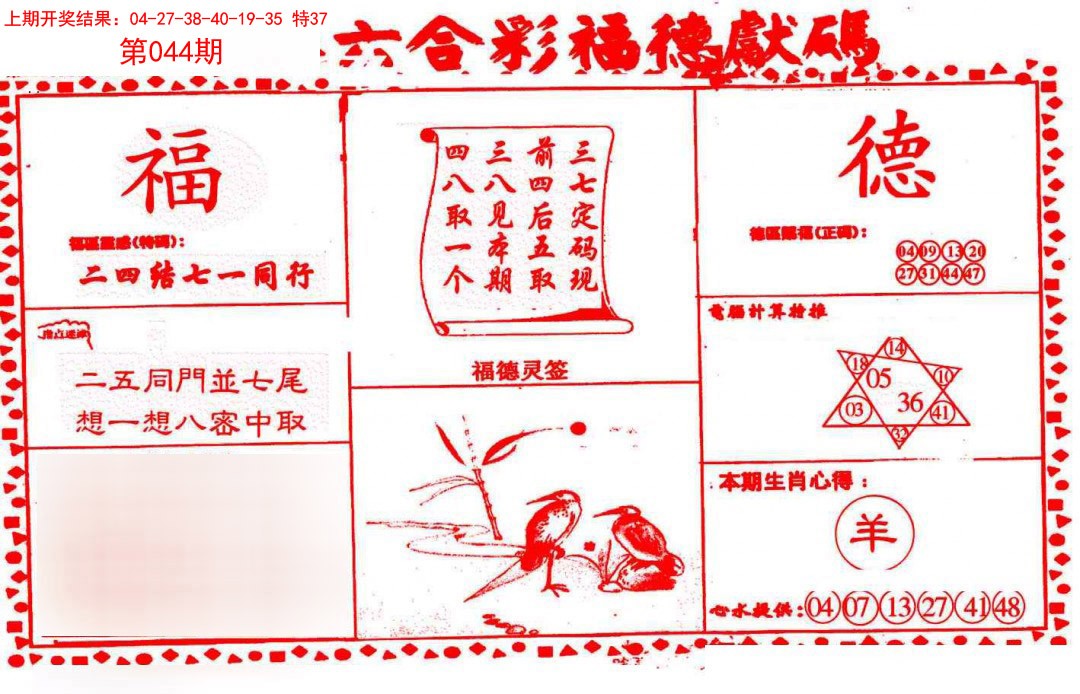 上期开奖结果：04-27-38-40-19-35 特37
第044期
六合彩福德獻碼
福
福區靈感(特碼):
二四结七一同行
二五同門並七尾
想一想八審中取
三七定码现
前四后五取
三八见本期
四八取一个
福德灵签
德
德區賜福(正碼):
04 09 13 20
27 31 44 47
電腦計算檢推
14
18 05 10
03 36 41
32
本期生肖心得：
羊
心水提供: 04 07 13 27 41 48